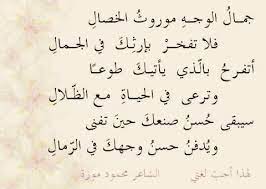 جمـالُ الوجـهِ موروثُ الخصالِ
فلا تفخـرْ بإرثـكَ في الجـمالِ
أتفرحُ بالّذي يأتيـكَ طوعًـا
وترعى في الحياةِ مع الظّـلالِ
سيبقى حُسنُ صنعكَ حينَ تفنى
ويُدفنُ حسنُ وجهكَ في الرّمالِ
لهذا أحبّ لغتي الشاعر محمود مورة